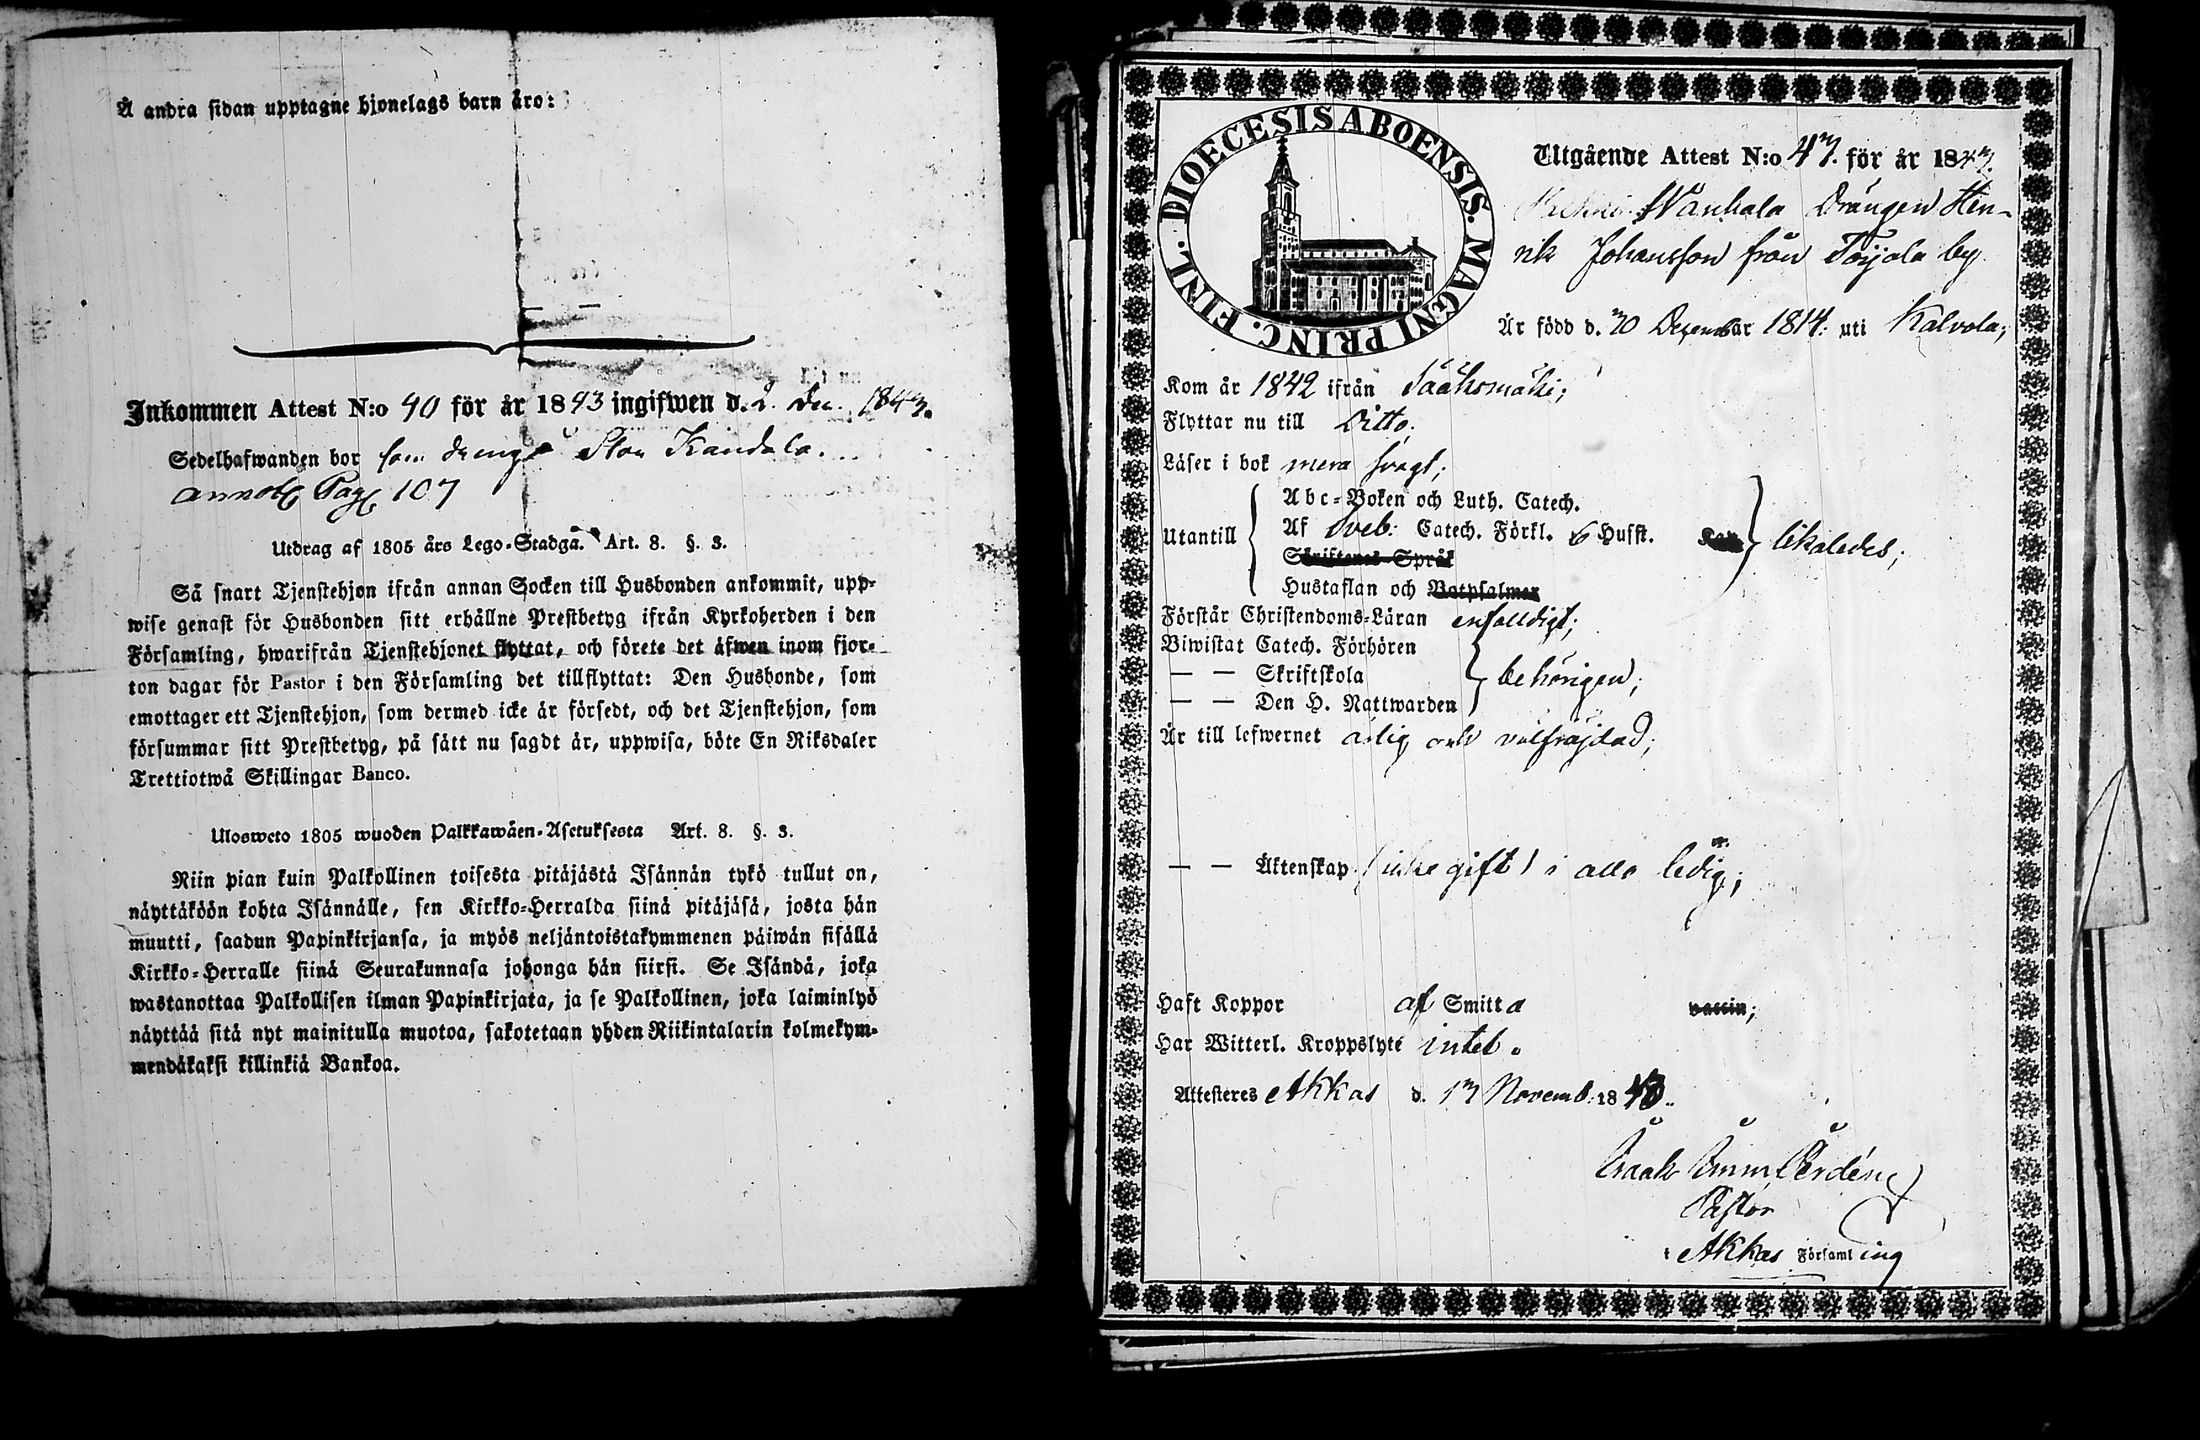 Å andra sidan upptagne hjonelags barn äro:
Inkommen Attest N:o 40 för år 1843 ingifwen d. 2. Dec. 1843.
Sedelhafwanden bor som dreng å Stor Kandola.
annot. Pag. 107
Utdrag af 1805 års Lego-Stadga. Art. 8. §. 3.
Så snart Tjenstehjon ifrån annan Socken till Husbonden ankommit, upp-
wise genast för Husbonden sitt erhållne Prestbetyg ifrån Kyrkoherden i den
Församling, hwarifrån Tjenstehjonet flyttat, och förete det äfwen inom fjor-
ton dagar för Pastor i den Församling det tillflyttat: Den Husbonde, som
emottager ett Tjenstehjon, som dermed icke är försedt, och det Tjenstehjon, som
försummar sitt Prestbetyg, på sätt nu sagdt är, uppwisa, böte En Riksdaler
Trettiotwå Skillingar Banco.
Ulosweto 1805 wuoden Palkkawäen-Asetuksesta Art. 8. §. 3.
Niin pian kuin Palkollinen toisesta pitäjästä Isännän tykö tullut on,
näyttäköön kohta Isännälle, sen Kirkko-Herralda siinä pitäjäsä, josta hän
muutti, saadun Papinkirjansa, ja myös neljäntoistakymmenen päiwän sisällä
Kirkko-Herralle siinä Seurakunnasa johonga hän siirsi. Se Isändä, joka
wastanottaa Palkollisen ilman Papinkirjata, ja se Palkollinen, joka laiminlyö
näyttää sitä nyt mainitulla muotoa, sakotetaan yhden Riikintalarin kolmekym-
mendäkaksi killinkiä Bankoa.
DIOECESIS ABOENSIS. MAGNI PRINC. FINL.
Utgående Attest N:o 43. för år 1843.
Wanhala Drängen Hen-
rik Johansson från Torjala by
Är född d. 30 December 1814: uti Kalvola;
Kom år 1842 ifrån Sääksmäki;
Flyttar nu till Ditto.
Läser i bok mera svagt;
Abc-Boken och Luth. Catech.
Utantill Af Sveb: Catech. Förkl. 6 Hufst. likaledes;
Skriftenes Språk
Hustaflan och Botpsalmer
Förstår Christendoms-Läran enfalldigt;
Biwistat Catech. Förhören
— — Skriftskola behörigen;
— — Den H. Nattwarden
Är till lefwernet ärlig och välfräjdad;
— — Äktenskap (icke gift) i allo ledig;
Haft Koppor af Smitta vaccin;
Har Witterl. Kroppslyte intet.
Attesteres Akkas d. 13 Novemb: 1843.
Isaak Imm. Perdén
Pastor
i Akkas Församling